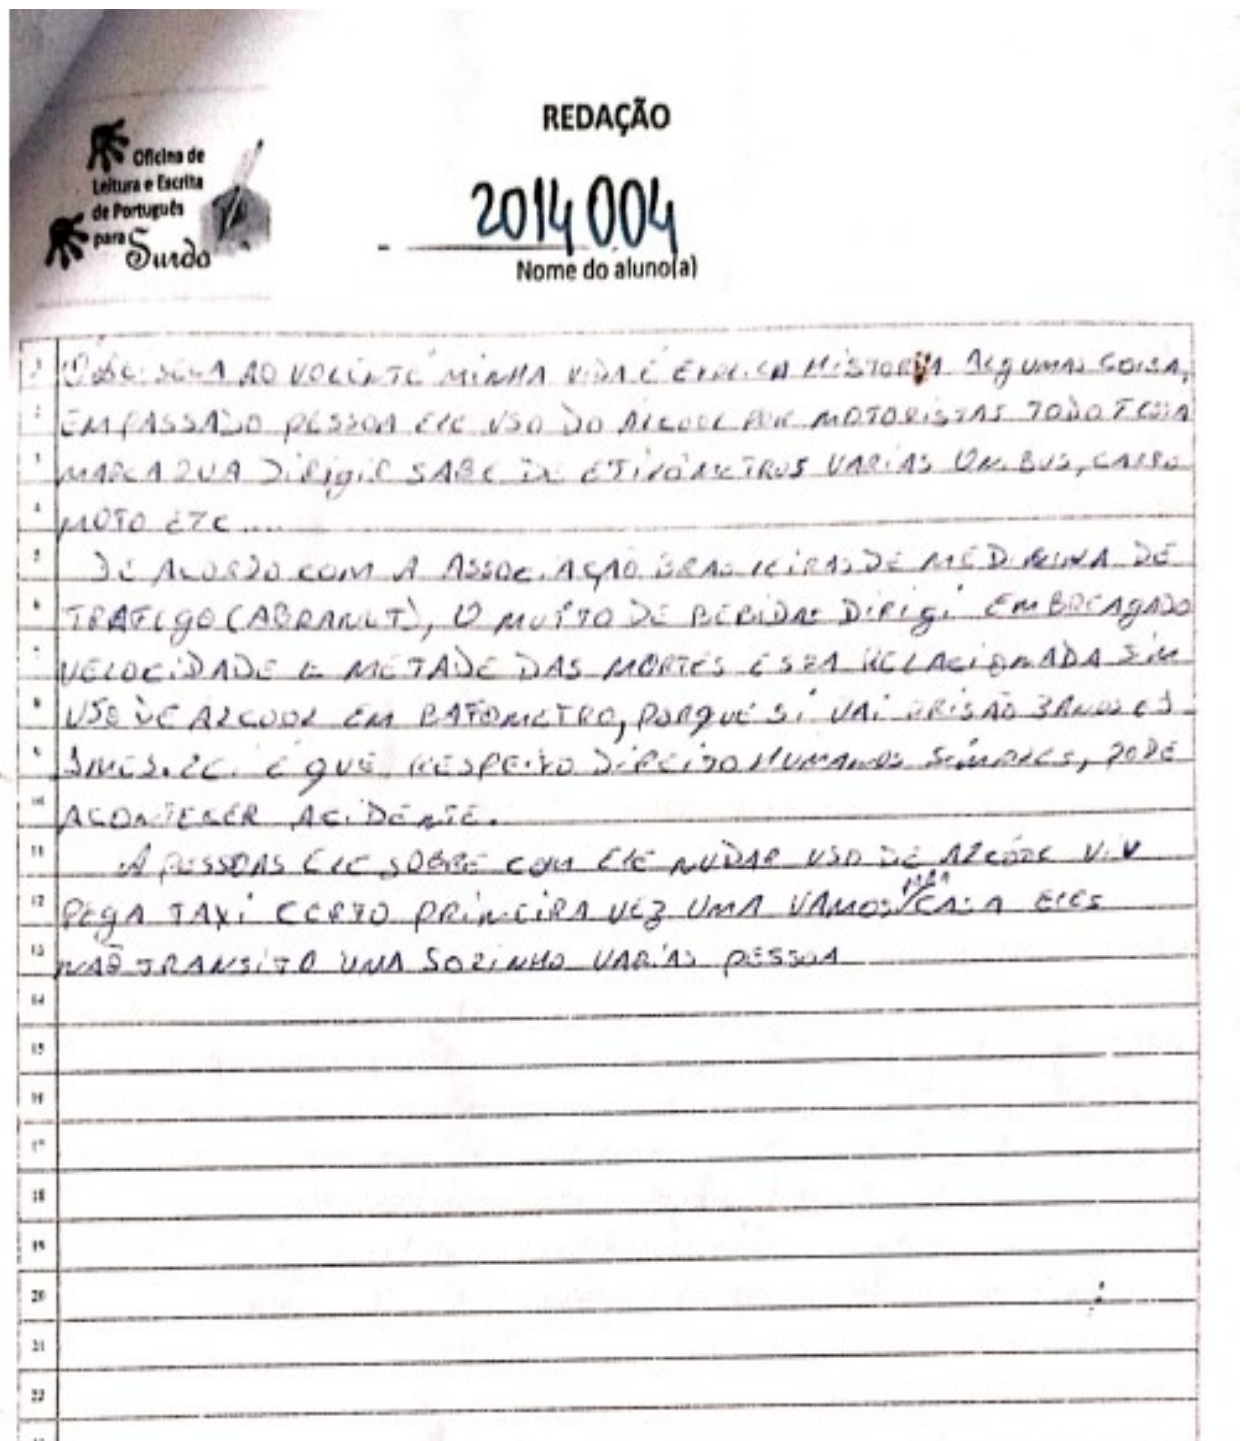 REDAÇÃO
Oficina de
Leitura e Escrita
de Português
para Surdo
2014004
Nome do aluno(a)
1 AO VOLANTE MINHA VIDA É EXPLICA HISTORIA ALGUMAS COISA,
2 EM PASSADO PESSOA ELE USO DO ALCOOL POR MOTORISTAS TODO
3 DIRIGIR SABE DE VARIAS ONIBUS, CARRO
4 MOTO ETC....
5 DE ACORDO COM A ASSOCIAÇÃO BRASILEIRAS DE MEDICINA DE
6 TRAFIGO (ABRAMET), O MUITO DE BEBIDA DIRIGI EMBREAGADO
7 VELOCIDADE E METADE DAS MORTES ESTA RELACIONADA SIM
8 USO DE ALCOOL EM BAFOMETRO, PORQUE SI VAI PRISÃO 3 ANOS E
9 É QUE RESPEITO DIREITO HUMANOS PODE
10 ACONTESER ACIDENTE.
11 A PESSOAS ELE SOBRE COM ELE MUDAR USO DE
12 PEGA TAXI CERTO PRIMEIRA VEZ UMA VAMOS PARA CASA ELES
13 NAS TRANSITO UMA SOZINHO VARIAS PESSOA
14
15
16
17
18
19
20
21
22